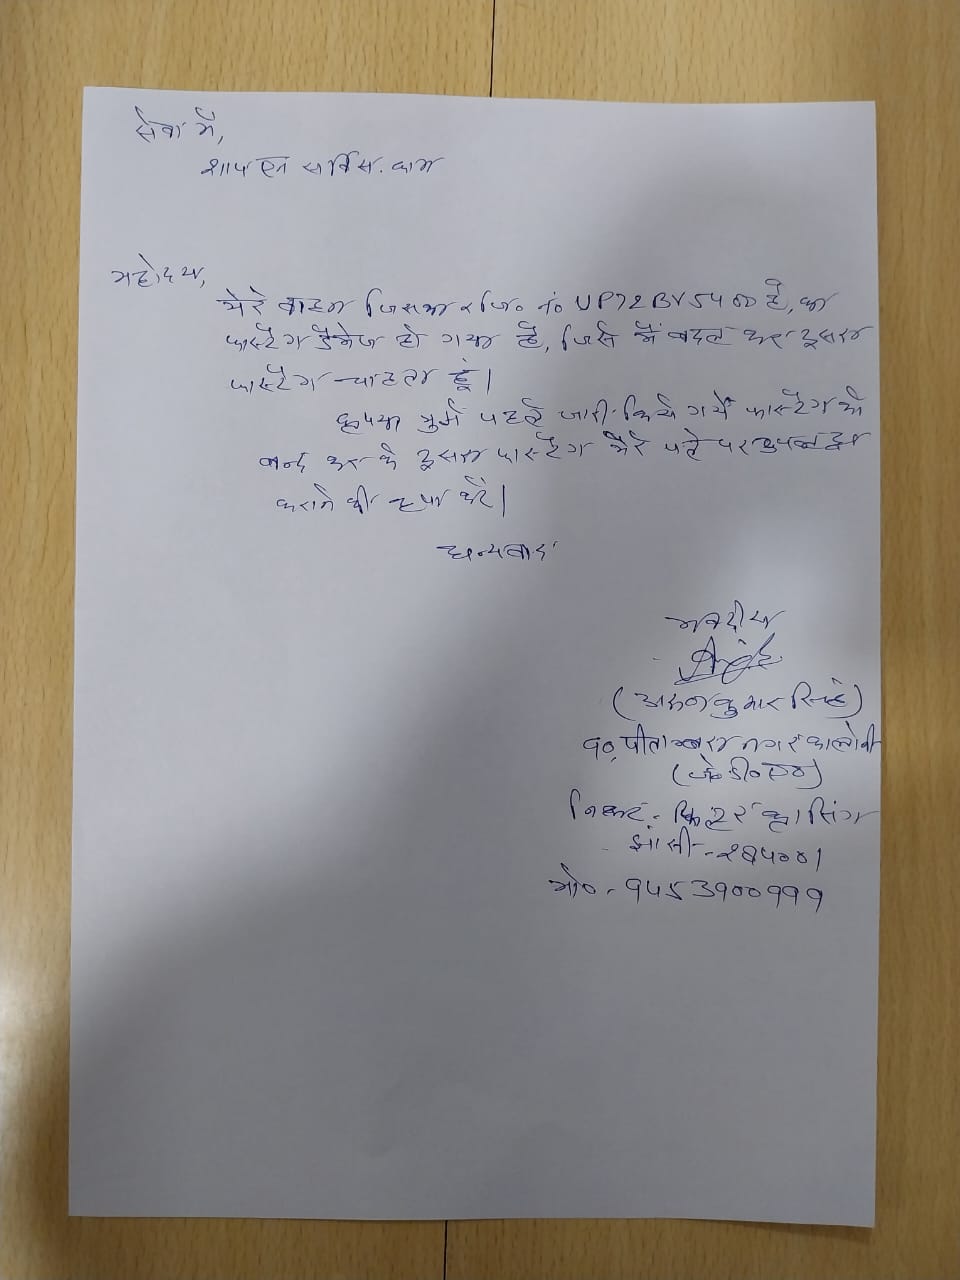 सेवा में,
शाप एन सर्विस. काम
महोदय,
मेरे वाहन जिसका रजि० नं० UP72BV5400 है, का
फास्टैग डैमेज हो गया है, जिसे मैं बदल कर दूसरा
फास्टैग चाहता हूं।
कृपया मुझे पहले जारी किये गये फास्टैग को
बन्द कर के दूसरा फास्टैग मेरे पते पर उपलब्ध
कराने की कृपा करें।
धन्यवाद
भवदीय
(अरुण कुमार सिंह)
१०, पीताम्बरा नगर कालोनी
(जे०डी०एम०)
निकट - क्रासिंग
झांसी - २८४००1
मो० - ९४५३९००९९९